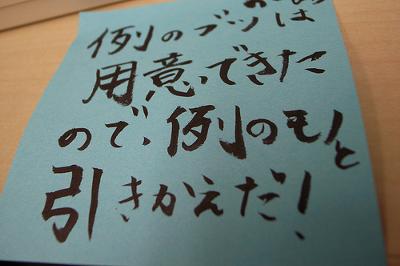 例のブツは
用意できた
ので、例のモノと
引きかえだ!